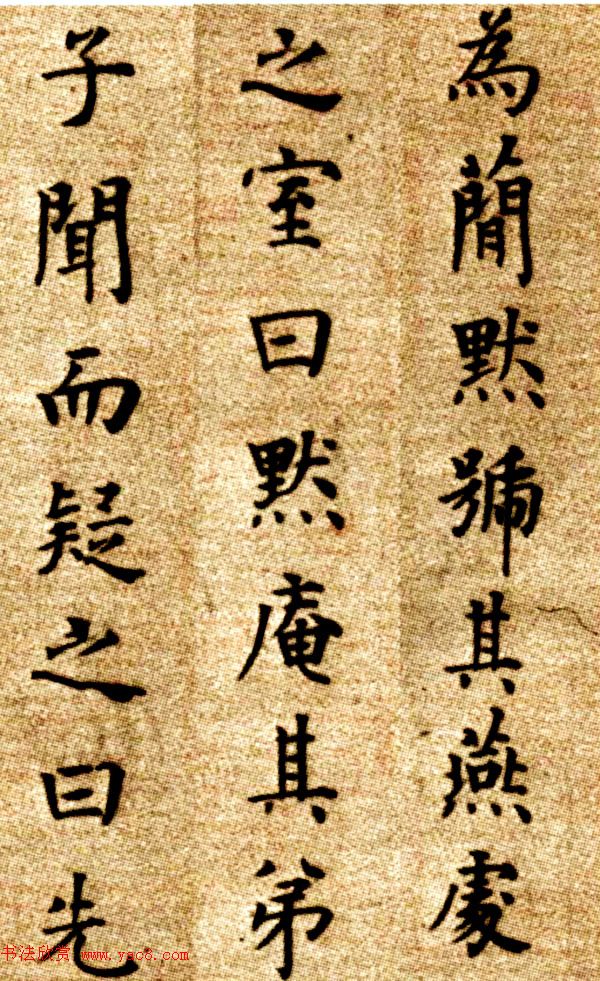 為蕳默號其燕處
之室曰默庵其弟
子聞而疑之曰先
书法欣赏 www.yac8.com